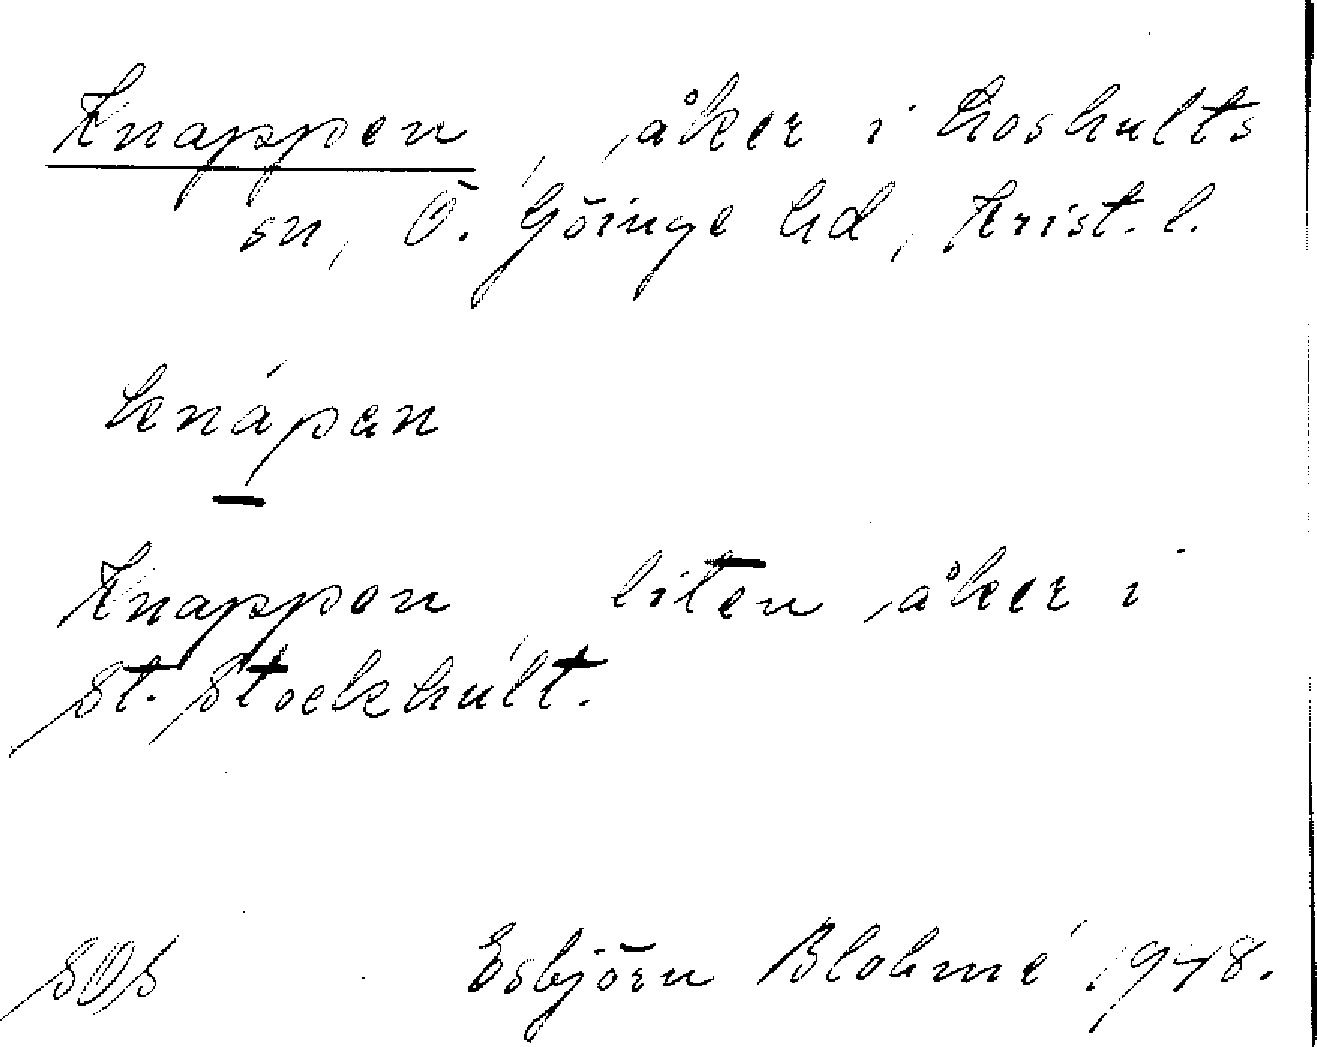 Knappen, åker i Loshults
sn, Ö. Göinge hd, Krist. l.
knápan
Knappen liten åker i
St. Stockhult.
SOS Esbjörn Blohmé 1948.